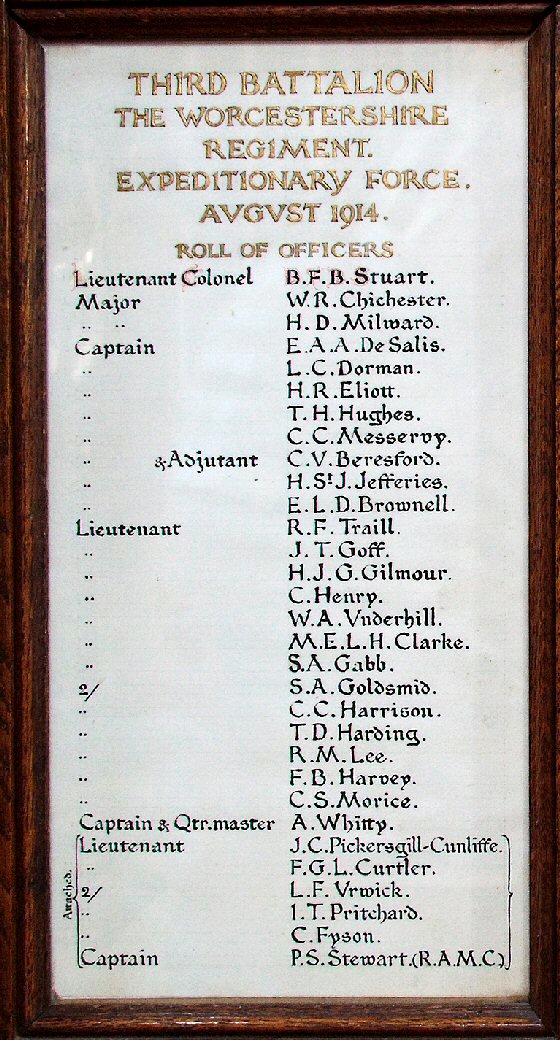 THIRD BATTALION
THE WORCESTERSHIRE
REGIMENT.
EXPEDITIONARY FORCE.
AVGVST 1914.
ROLL OF OFFICERS
Lieutenant Colonel B.F.B. Stuart.
Major W.R. Chichester.
" " H.D. Milward.
Captain E.A.A. De Salis.
" L.C. Dorman.
" H.R. Eliott.
" T.H. Hughes.
" C.C. Messervy.
" & Adjutant C.V. Beresford.
" H. St J. Jefferies.
" E.L.D. Brownell.
Lieutenant R.F. Traill.
" J.T. Goff.
" H.J.G. Gilmour.
" C. Henry.
" W.A. Vnderhill.
" M.E.L.H. Clarke.
" S.A. Gabb.
2/ S.A. Goldsmid.
" C.C. Harrison.
" T.D. Harding.
" R.M. Lee.
" F.B. Harvey.
" C.S. Morice.
Captain & Qtr. master A. Whitty.
Attached.
Lieutenant J.C. Pickersgill-Cunliffe.
" F.G.L. Curtler.
2/ L.F. Vrwick.
" I.T. Pritchard.
" C. Fyson.
Captain P.S. Stewart. (R.A.M.C.)